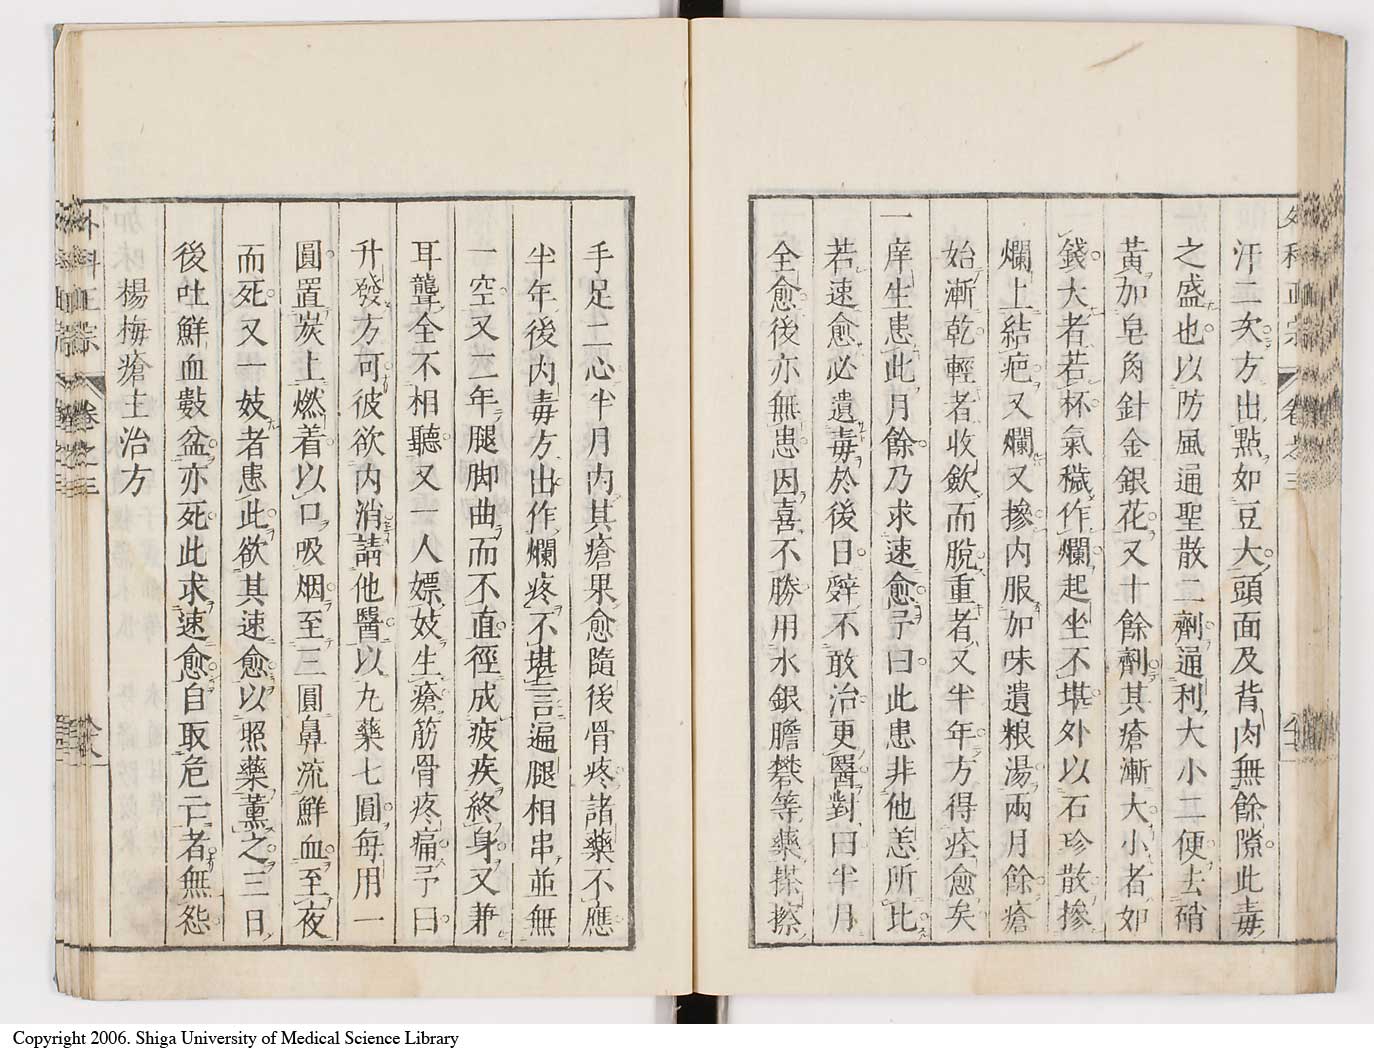 外科正宗 卷之三
汗二次方出點如豆大頭面及背肉無餘隙此毒
之盛也以防風通聖散二劑通利大小二便去硝
黃加皂角針金銀花又十餘劑其瘡漸大小者如
錢大者若杯氣穢作爛起坐不堪外以石珍散摻
爛上結疤又爛又摻內服加味遺粮湯兩月餘瘡
始漸乾輕者收歛而脫重者又半年方得痊愈矣
一庠生患此月餘乃求速愈予曰此患非他恙所比
若速愈必遺毒於後日辭不敢治更醫對曰半月
全愈後亦無患因喜不勝用水銀膽礬等藥搽擦
手足二心半月內其瘡果愈隨後骨疼諸藥不應
半年後內毒方出作爛疼不堪言遍腿相串並無
一空又二年腿脚曲而不直徑成疲疾終身又兼
耳聾全不相聽又一人嫖妓生瘡筋骨疼痛予曰
升發方可彼欲內消請他醫以九藥七圓每用一
圓置炭上燃着以口吸烟至三圓鼻流鮮血至夜
而死又一妓者患此欲其速愈以照藥薰之三日
後吐鮮血數盆亦死此求速愈自取危亡者無怨
楊梅瘡主治方
外科正宗 卷之三